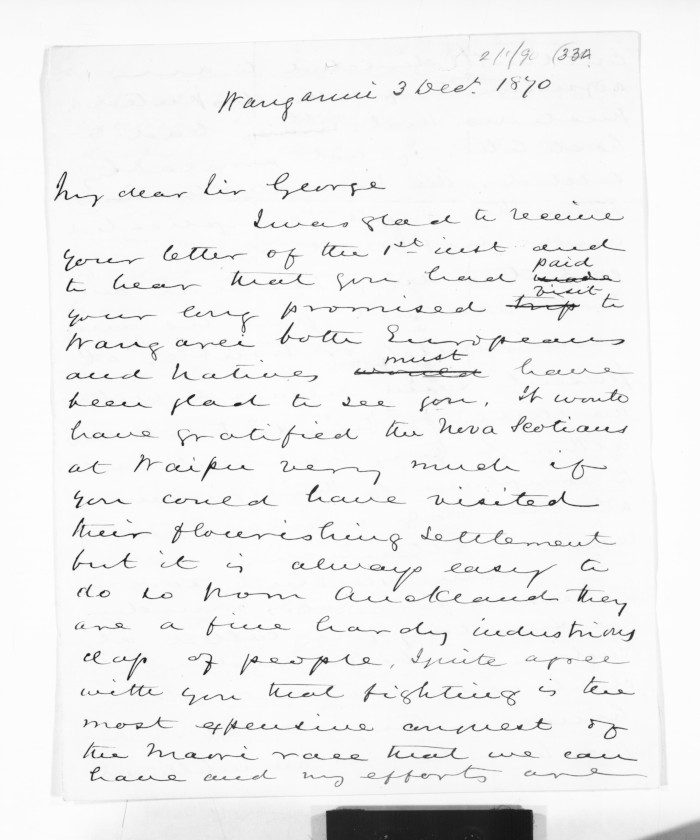 2/1/90 (33A
Wanganui 3 Dec. 1870
My dear Sir George
I was glad to receive
your letter of the 1st inst and
to hear that you had made paid
your long promised trip visit to
Wangarei both Europeans
and Natives would must have
been glad to see you. It would
have gratified the Nova Scotians
at Waipu very much if
you could have visited
their flourishing settlement
but it is always easy to
do so from Auckland they
are a fine hardy industrious
class of people. I quite agree
with you that fighting is the
most expensive conquest of
the Maori race that we can
have and my efforts are